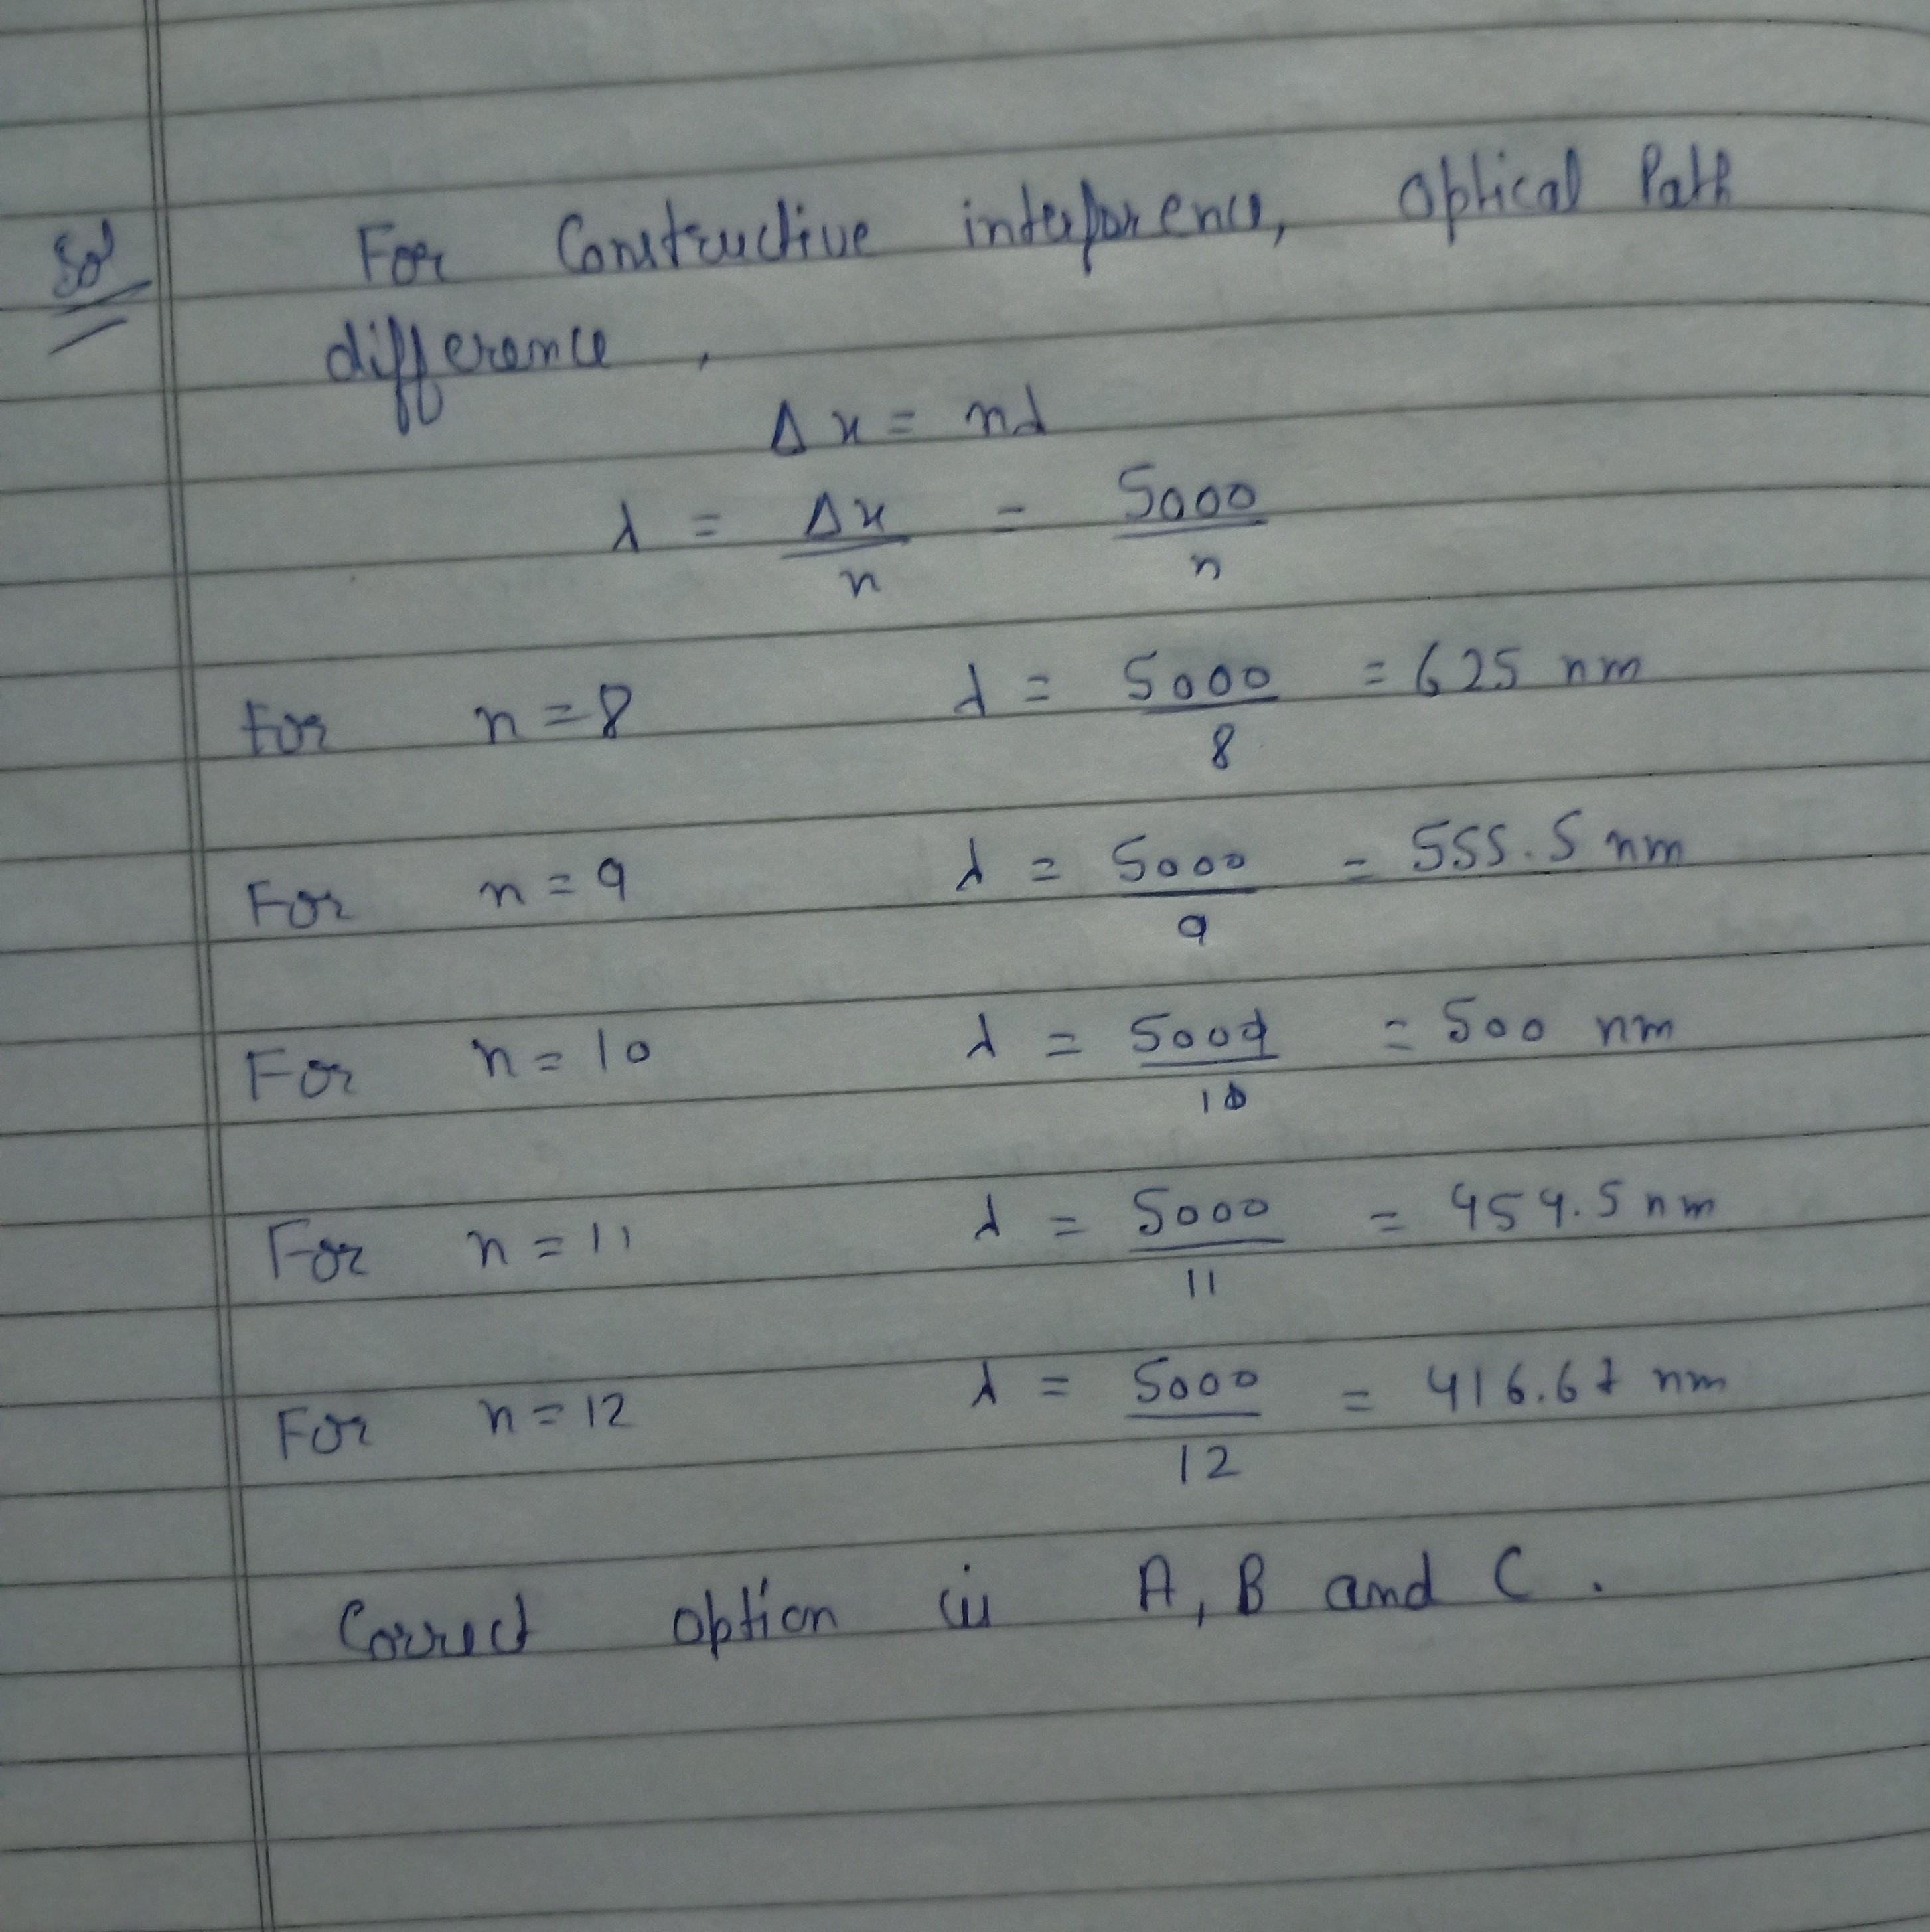 Sol For Constructive interference, optical Path
difference,
Δx = nλ
λ = Δx/n = 5000/n
For n = 8 λ = 5000/8 = 625 nm
For n = 9 λ = 5000/9 = 555.5 nm
For n = 10 λ = 5000/10 = 500 nm
For n = 11 λ = 5000/11 = 454.5 nm
For n = 12 λ = 5000/12 = 416.67 nm
Correct option is A, B and C.